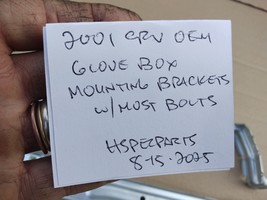 2001 CRV OEM
GLOVE BOX
MOUNTING BRACKETS
W/MOST BOLTS
HSPECPARTS
8-15-2025